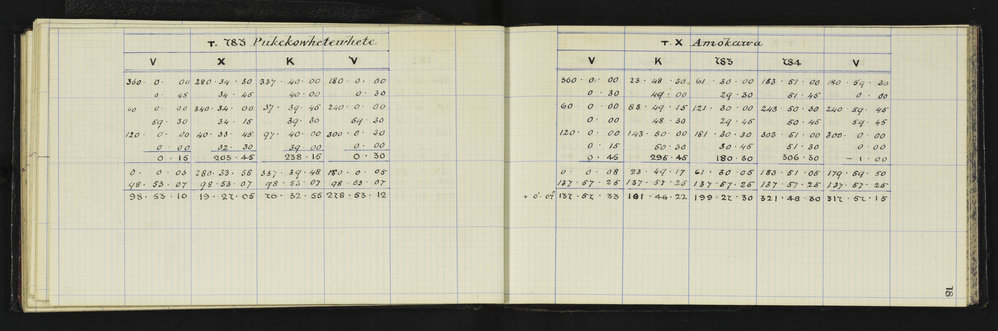 T. 783 Pukekowhetewhete
V X K V
360 · 0 · 00 280 · 34 · 30 337 · 40 · 00 180 · 0 · 00
0 · 45 34 · 45 40 · 00 0 · 30
60 · 0 · 00 340 · 34 · 00 37 · 39 · 45 240 · 0 · 00
59 · 30 34 · 15 39 · 30 59 · 30
120 · 0 · 00 40 · 33 · 45 97 · 40 · 00 300 · 0 · 30
0 · 00 32 · 30 39 · 00 0 · 00
0 · 15 203 · 45 238 · 15 0 · 30
0 · 0 · 03 280 · 33 · 58 337 · 39 · 48 180 · 0 · 05
98 · 53 · 07 98 · 53 · 07 98 · 53 · 07 98 · 53 · 07
98 · 53 · 10 19 · 27 · 05 76 · 32 · 55 278 · 53 · 12
T. X Amokawa
V K 783 784 V
360 · 0 · 00 23 · 48 · 30 61 · 30 · 00 183 · 51 · 00 180 · 59 · 30
0 · 30 49 · 00 29 · 30 51 · 45 0 · 00
60 · 0 · 00 83 · 49 · 15 121 · 30 · 00 243 · 50 · 30 240 · 59 · 45
0 · 00 48 · 30 29 · 45 50 · 45 59 · 45
120 · 0 · 00 143 · 50 · 00 181 · 30 · 30 303 · 51 · 00 300 · 0 · 00
0 · 15 50 · 30 30 · 45 51 · 30 0 · 00
0 · 45 295 · 45 180 · 30 306 · 30 - 1 · 00
0 · 0 · 08 23 · 49 · 17 61 · 30 · 05 183 · 51 · 05 179 · 59 · 50
137 · 57 · 25 137 · 57 · 25 137 · 57 · 25 137 · 57 · 25 137 · 57 · 25
137 · 57 · 33 161 · 46 · 42 199 · 27 · 30 321 · 48 · 30 317 · 57 · 15
18